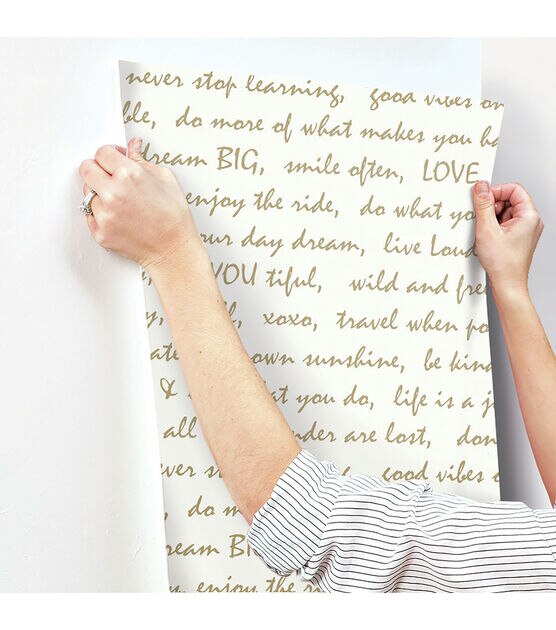 never stop learning, good vibes on
ble, do more of what makes you ha
dream BIG, smile often, LOVE
enjoy the ride, do what you
ur day dream, live Loud
YOU tiful, wild and free
xoxo, travel when po
ate own sunshine, be kind
& at you do, life is a j
all nder are lost, don
ver st good vibes o
do m
ream B
enjoy the r